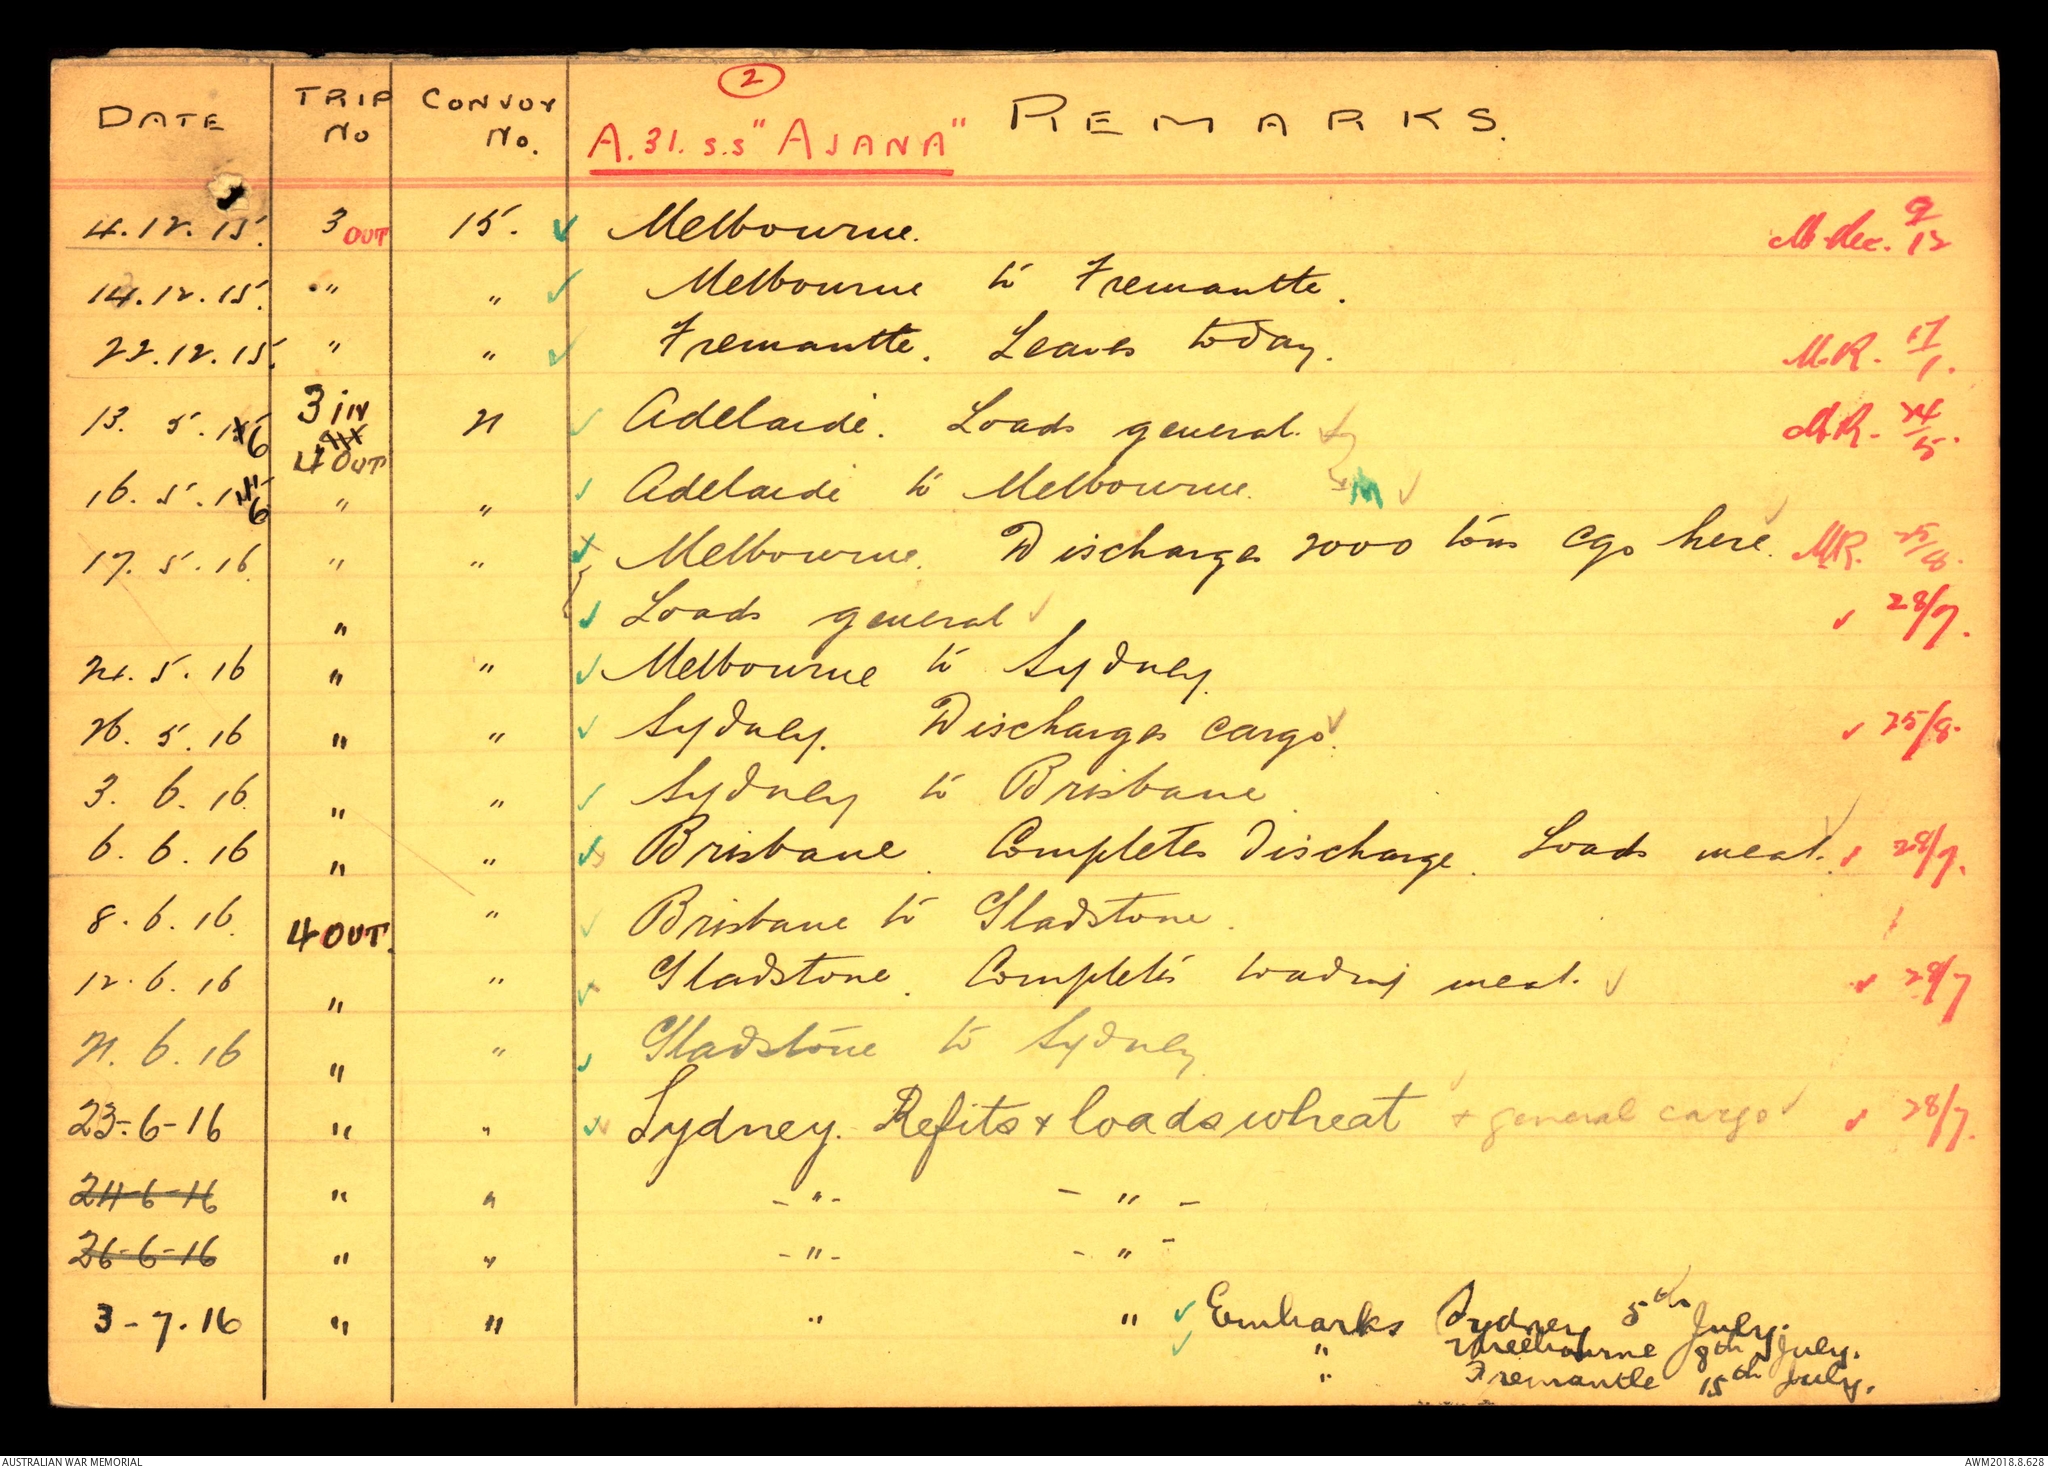 2
DATE TRIP No CONVOY No. A.31. s.s "AJANA" REMARKS.
4.12.15. 3 OUT 15. Melbourne. M. Dec. 9/12
14.12.15. " " Melbourne to Fremantle.
22.12.15. " " Fremantle. Leaves today. M.R. 17/1.
13. 5. 16 3 in 21 Adelaide. Loads general. M.R. 24/5.
4 OUT
16. 5. 16 " " Adelaide to Melbourne. M
17. 5. 16 " " Melbourne. Discharges 2000 tons cgo here. M.R. 25/8.
" Loads general 28/7.
21. 5. 16 " " Melbourne to Sydney.
26. 5. 16 " " Sydney. Discharges cargo. 25/8.
3. 6. 16. " " Sydney to Brisbane.
6. 6. 16 " " Brisbane. Completes Discharge. Loads meat. 28/7.
8. 6. 16. 4 OUT. " Brisbane to Gladstone.
12. 6. 16 " " Gladstone. Completes loading meat. 28/7
21. 6. 16 " " Gladstone to Sydney
23-6-16 " " Sydney. Refits + loads wheat + general cargo 28/7.
24-6-16 " " - " - - " -
26-6-16 " " - " - - " -
3-7-16 " " " " Embarks Sydney 5th July.
" Melbourne 8th July.
" Fremantle 15th July.
AUSTRALIAN WAR MEMORIAL AWM2018.8.628